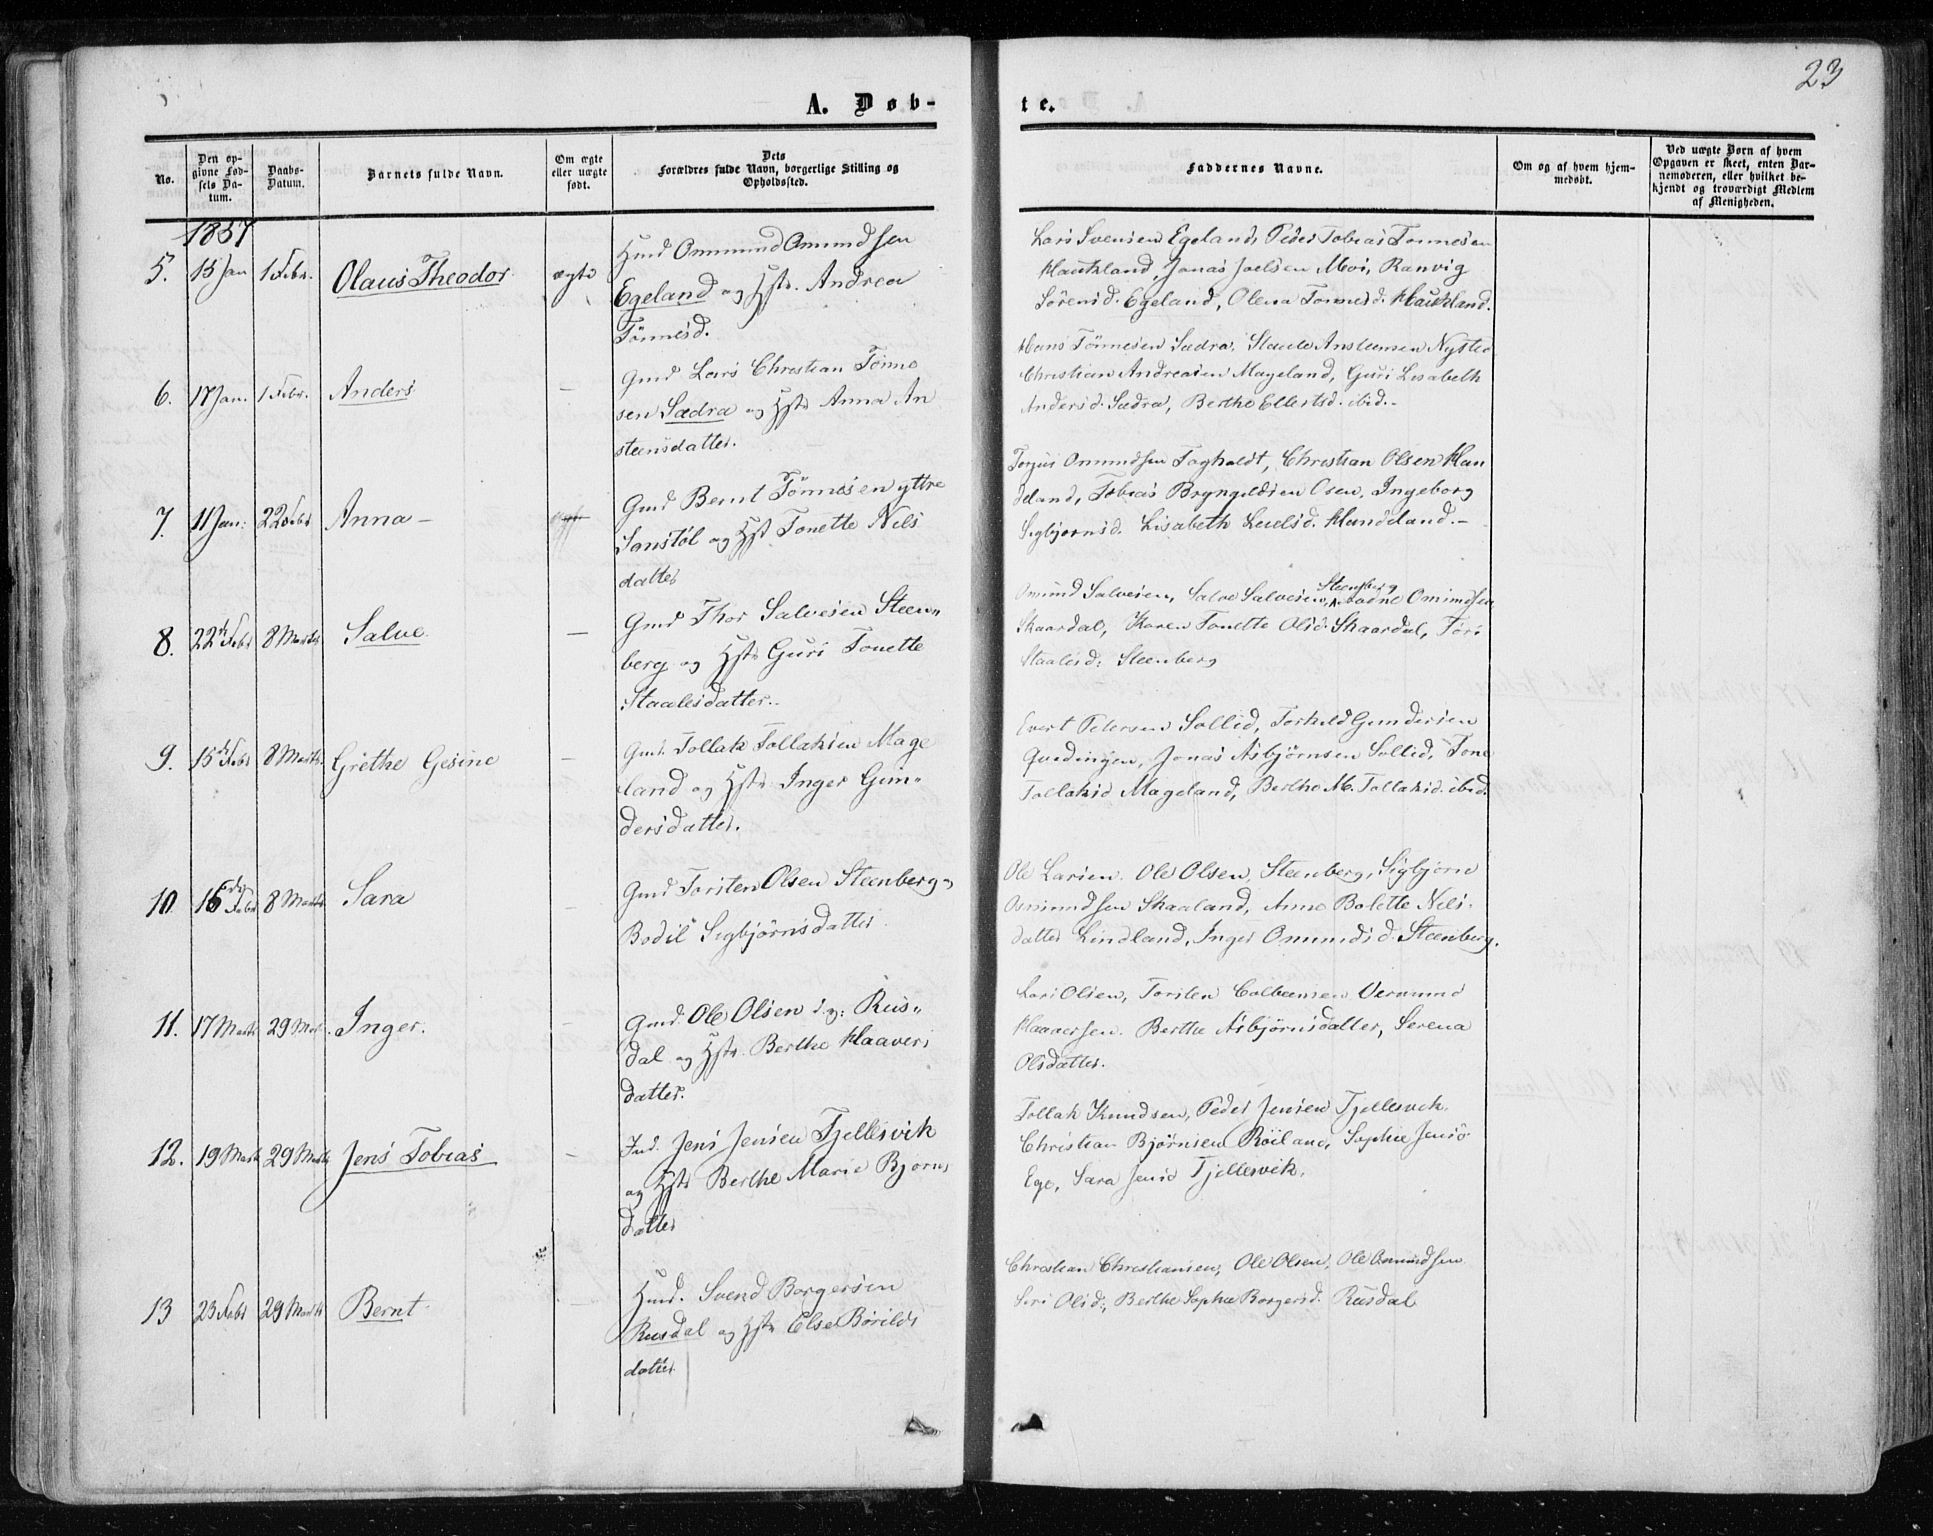 23
A. Døb-
te.
No.
Den op-
givne Fød-
sels Da-
tum.
Daabs-
Datum.
Barnets fulde Navn.
Om ægte
eller uægte
født.
Dets
Forældres fulde Navn, borgerlige Stilling og
Opholdssted.
Faddernes Navne.
Om og af hvem hjem-
medøbt.
Ved uægte Børn af hvem
Opgaven er skeet, enten Bar-
nemoderen, eller hvilket be-
kjendt og troværdigt Medlem
af Menigheden.
1857
5. 15 Jan 1 Febr. Olaus Theodor ægte
Ommund Omundsen
Egeland og Hstr. Andrea
Tönnesd.
Lars Svensen Egeland, Peder Tobias Tonnesen
Haukland, Jonas Joelsen Moi, Ranvig
Sörensd. Egeland, Olena Tonnesd. Haukland.
6. 17 Jan. 1 Febr. Anders –
Gmd Lars Christian Tönne
sen Sædra og Hstr Anna An
steensdatter.
Hans Tönnesen Sædra, Ansteensen Nysted
Christian Andreasen Mageland, Guri Lisabeth
Andersd. Sædra, Berthe Ellertsd. ibid.-
7. 11 Jan. 22 Febr Anna –
Gmd Bernt Tönnesen yttre
Sanstöl og Hst Tonette Nils
datter
Torjus Omundsen Fagholdt, Christian Olsen Han
deland, Tobias Bryngeldsen Osen, Ingeborg
Sigbjørnsd. Lisabeth Handeland.–
8. 22de Febr 8 Marts Salve –
Gmd Thor Salvesen Steen„
berg og Hstr Guri Tonette
Staalesdatter.
Omund Salvesen, Salve Salvesen, Steenberg Omundsen
Skaardal, Karen Tonette Olsd. Skaardal, Tori
Staalesd: Steenberg
9. 15de Febr 8 Marts. Grethe Gesine –
Gmd. Tollak Tollaksen Mage
land og Hstr Inger Gun„
dersdatter.
Evert Petersen Sollid, Torkeld Gundersen
Qvedingen, Jonas Asbjørnsen Sollid, Tone
Tollaksd Mageland, Berthe M. Tollaksd. ibid.
10 16de Febr 8 Marts Sara –
Gmd Torsten Olsen Steenberg
Bodil Sigbjørnsdatter.
Ole Larsen, Ole Olsen, Steenberg, Sigbjørn
Osmundsen Skaaland, Anne Bolette Nils-
datter Lindland, Inger Omundsd. Steenberg.
11. 17 Marts 29 Mar. Inger. –
Gmd. Ole Olsen Rus„
dal og Hstr. Berthe Haavers
datter.
Lars Olsen, Torsten Colbeensen Vermund
Haaversen. Berthe Asbjørnsdatter, Serena
Olsdatter.
12. 19 Marts 29 Marts Jens Tobias –
Ind. Jens Jensen Tjellesvik
og Hstr Berthe Marie Bjorns
datter
Tollak Knudsen, Peder Jensen Tjellesvik,
Christian Bjørnsen Röiland, Sophie Jensd
Ege, Sara Jensd Tjellesvik.
13 23 Febr 29 Marts Bernt –
Svend Borgersen
Rusdal og Hstr Else Börilds
datter
Christian Christiansen, Ole Olsen, Ole Omundsen
Siri Olsd., Berthe Sophie Borgersd. Rusdal